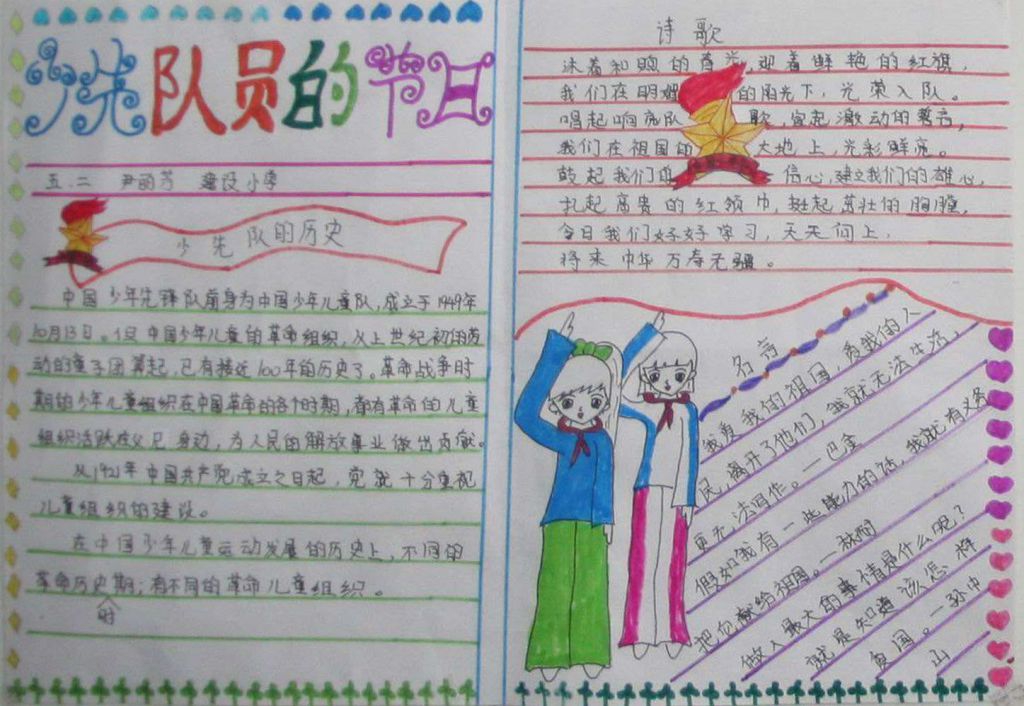 少先队员的节日
五.二 尹雨芳 建设小学
少先队的历史
中国少年先锋队前身为中国少年儿童队,成立于1949年
10月13日。但中国少年儿童的革命组织,从上世纪初的劳
动的童子团算起,已有接近100年的历史了。革命战争时
期的少年儿童组织在中国革命的各个时期,都有革命的儿童
组织活跃在父兄身边,为人民的解放事业做出贡献。
从1921年中国共产党成立之日起,党就十分重视
儿童组织的建设。
在中国少年儿童运动发展的历史上,不同的
革命历史期;有不同的革命儿童组织。
时
诗歌
沐着和煦的春光,迎着鲜艳的红旗,
我们在明媚的阳光下,光荣入队。
唱起响亮队歌,宣起激动的誓言,
我们在祖国的大地上,光彩鲜亮。
鼓起我们的信心,建立我们的雄心,
扎起高贵的红领巾,挺起茁壮的胸膛,
今日我们好好学习,天天向上,
将来中华万寿无疆。
名言
我爱我的祖国,爱我的人
民,离开了他们,我就无法生活,
更无法写作。—巴金
假如我有一些能力的话,我就有义务
把它献给祖国。—林耐
做人最大的事情是什么呢?
就是知道该怎样
爱国。—孙中
山